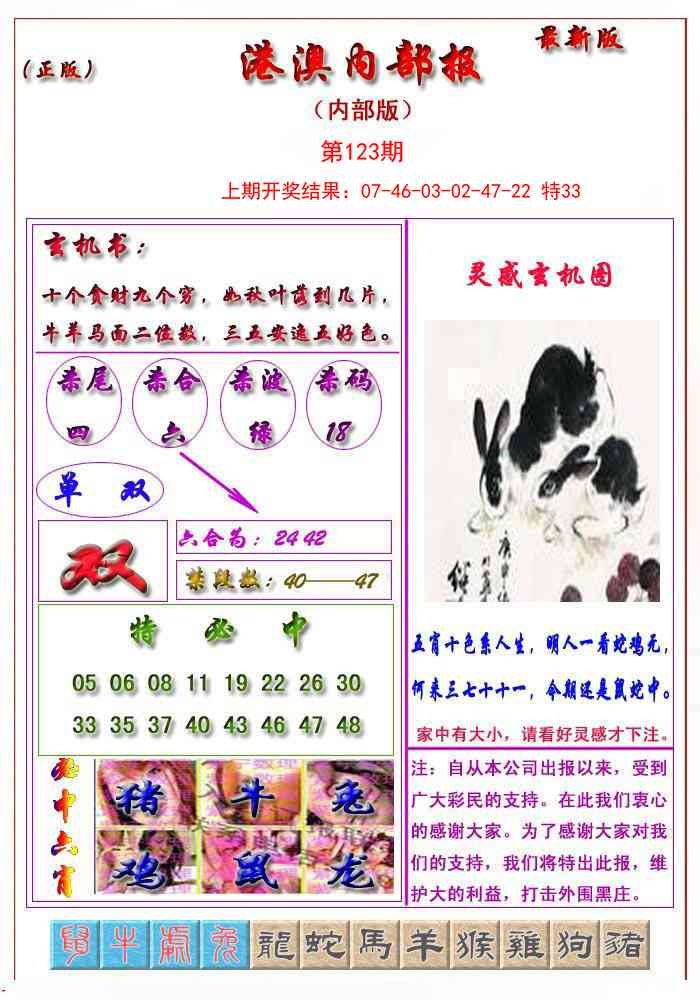 最新版
（正版）
港澳内部报
（内部版）
第123期
上期开奖结果：07-46-03-02-47-22 特33
玄机书：
十个贪财九个穷，如秋叶落到几片，
牛羊马面二位数，三五安逸五好色。
杀尾 杀合 杀波 杀码
四 六 绿 18
单 双
双
六合为：24 42
禁段数：40——47
特 必 中
05 06 08 11 19 22 26 30
33 35 37 40 43 46 47 48
必中六肖
猪 牛 兔
鸡 鼠 龙
灵感玄机图
五宵十色系人生，明人一看蛇鸡元，
何来三七十十一，今期还是鼠蛇中。
家中有大小，请看好灵感才下注。
注：自从本公司出报以来，受到
广大彩民的支持。在此我们衷心
的感谢大家。为了感谢大家对我
们的支持，我们将特出此报，维
护大的利益，打击外围黑庄。
鼠 牛 虎 兔 龍 蛇 馬 羊 猴 雞 狗 豬